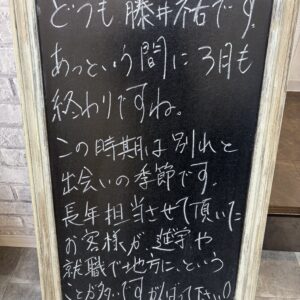 どうも藤井祐です。
あっという間に3月も
終わりですね。
この時期は別れと
出会いの季節です。
長年担当させて頂いた
お客様が、進学や
就職で地方に、という
ことが多いです。がんばって下さい!